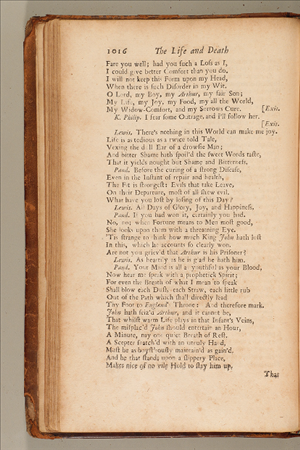 1016 The Life and Death
Fare you well; had you such a Loss as I,
I could give better Comfort than you do.
I will not keep this Form upon my Head,
When there is such Disorder in my Wit.
O Lord, my Boy, my Arthur, my fair Son;
My Life, my Joy, my Food, my all the World,
My Widow-Comfort, and my Sorrows Cure. [Exit.
K. Philip. I fear some Outrage, and I'll follow her.
[Exit.
Lewis. There's nothing in this World can make me joy.
Life is as tedious as a twice told Tale,
Vexing the dull Ear of a drowsie Man;
And bitter Shame hath spoil'd the sweet Words taste,
That it yields nought but Shame and Bitterness.
Pand. Before the curing of a strong Disease,
Even in the Instant of repair and health,
The Fit is strongest: Evils that take Leave,
On their Departure, most of all shew evil.
What have you lost by losing of this Day?
Lewis. All Days of Glory, Joy, and Happiness.
Pand. If you had won it, certainly you had.
No, no; when Fortune means to Men most good,
She looks upon them with a threatning Eye.
'Tis strange to think how much King John hath lost
In this, which he accounts so clearly won.
Are not you griev'd that Arthur is his Prisoner?
Lewis. As heartily as he is glad he hath him.
Pand. Your Mind is all as youthful as your Blood,
Now hear me speak with a prophetick Spirit;
For even the Breath of what I mean to speak
Shall blow each Dust, each Straw, each little rub
Out of the Path which shall directly lead
Thy Foot to England's Throne: And therefore mark.
John hath seiz'd Arthur, and it cannot be,
That whilst warm Life plays in that Infant's Veins,
The misplac'd John should entertain an Hour,
A Minute, nay one quiet Breath of Rest.
A Scepter snatch'd with an unruly Hand,
Must be as boyst'rously maintain'd as gain'd.
And he that stands upon a slippery Place,
Makes nice of no vile Hold to stay him up.
That